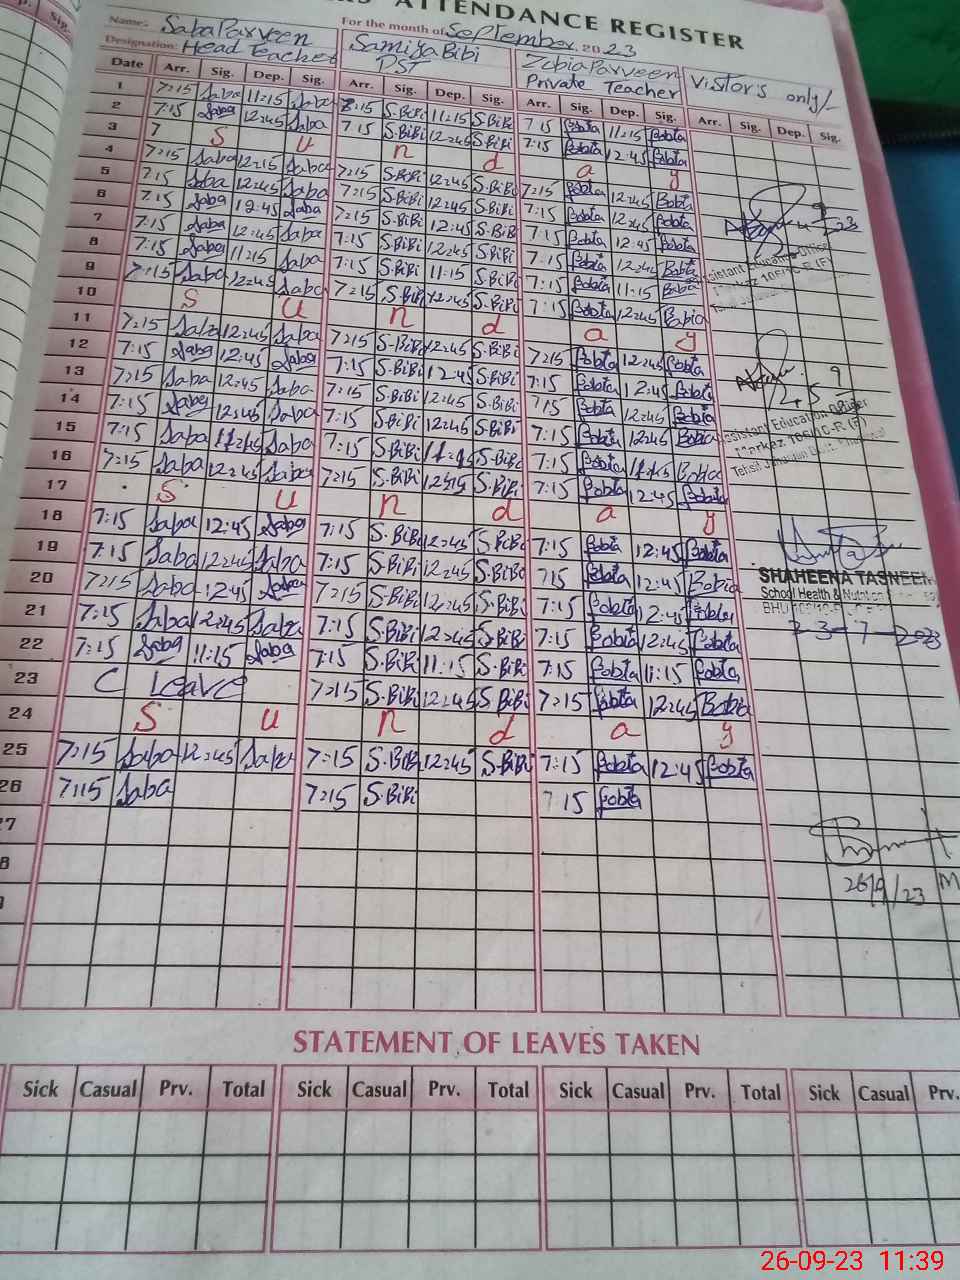 ATTENDANCE REGISTER
Name: Saba Parveen
For the month of September 2023
Designation: Head Teacher
Samiya Bibi
PST
Zobia Parveen
Private Teacher
Visitor's only/-
Date Arr. Sig. Dep. Sig. Arr. Sig. Dep. Sig. Arr. Sig. Dep. Sig. Arr. Sig. Dep. Sig.
1 7:15 Saba 11:15 Saba 7:15 S.BiBi 11:15 S.BiBi 7:15 11:15
2 7:15 Saba 12:45 Saba 7:15 S.BiBi 12:45 S.BiBi 7:15 12:45
3 S u n d a y
4 7:15 Saba 12:15 Saba 7:15 S.BiBi 12:45 S.BiBi 7:15 12:45
5 7:15 Saba 12:45 Saba 7:15 S.BiBi 12:45 S.BiBi 7:15 12:45
6 7:15 Saba 12:45 Saba 7:15 S.BiBi 12:45 S.BiBi 7:15 12:45
7 7:15 Saba 12:45 Saba 7:15 S.BiBi 12:45 S.BiBi 7:15 12:45
8 7:15 Saba 11:15 Saba 7:15 S.BiBi 11:15 S.BiBi 7:15 11:15
9 7:15 Saba 12:45 Saba 7:15 S.BiBi 12:45 S.BiBi 7:15 12:45
10 S u n d a y
11 7:15 Saba 12:45 Saba 7:15 S.BiBi 12:45 S.BiBi 7:15 12:45
12 7:15 Saba 12:45 Saba 7:15 S.BiBi 12:45 S.BiBi 7:15 12:45
13 7:15 Saba 12:45 Saba 7:15 S.BiBi 12:45 S.BiBi 7:15 12:45
14 7:15 Saba 12:45 Saba 7:15 S.BiBi 12:45 S.BiBi 7:15 12:45
15 7:15 Saba Saba 7:15 S.BiBi S.BiBi 7:15
16 7:15 Saba 12:45 Saba 7:15 S.BiBi S.BiBi 7:15 12:45
17 S u n d a y
18 7:15 Saba 12:45 Saba 7:15 S.BiBi 12:45 S.BiBi 7:15 12:45
19 7:15 Saba 12:45 Saba 7:15 S.BiBi 12:45 S.BiBi 7:15 12:45
20 7:15 Saba 12:45 Saba 7:15 S.BiBi 12:45 S.BiBi 7:15 12:45
21 7:15 Saba 12:45 Saba 7:15 S.BiBi 12:45 S.BiBi 7:15 12:45
22 7:15 Saba 11:15 Saba 7:15 S.BiBi 11:15 S.BiBi 7:15 11:15
23 C Leave 7:15 S.BiBi 12:45 S.BiBi 7:15 12:45
24 S u n d a y
25 7:15 Saba 12:45 Saba 7:15 S.BiBi 12:45 S.BiBi 7:15 12:45
26 7:15 Saba 7:15 S.BiBi 7:15
Assistant Education Officer
Assistant Education Officer
SHAHEENA TASNEEM
School Health & Nutrition
26/9/23
STATEMENT OF LEAVES TAKEN
Sick Casual Prv. Total Sick Casual Prv. Total Sick Casual Prv. Total Sick Casual Prv.
26-09-23 11:39